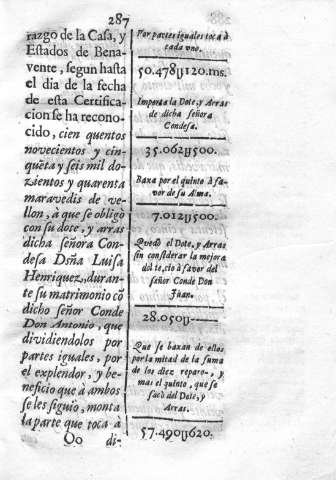 287
razgo de la Casa, y
Estados de Bena-
vente, segun hasta
el dia de la fecha
de esta Certifica-
cion se ha recono-
cido, cien quentos
novecientos y cin-
quēta y seis mil do-
zientos y quarenta
maravedis de ve-
llon, a que se obligò
con su dote, y arras
dicha señora Con-
desa Dña Luisa
Henriquez, duran-
te su matrimonio cõ
dicho señor Conde
Don Antonio, que
dividiendolos por
partes iguales, por
el explendor, y be-
neficio que à ambos
se les siguiò, monta
la parte que toca à
Oo di-
Por partes iguales toca à
cada uno.
50.478U120.ms.
Importa la Dote, y Arras
de dicha señora
Condesa.
35.062U500.
Baxa por el quinto à fa-
vor de su Alma.
7.012U500.
Quedò el Dote, y Arras
sin considerar la mejora
del tercio à favor del
señor Conde Don
Juan.
28.050U----
Que se baxan de estos
por la mitad de la suma
de los diez reparos, y
mas el quinto, que se
sacò del Dote, y
Arras.
57.490U620.